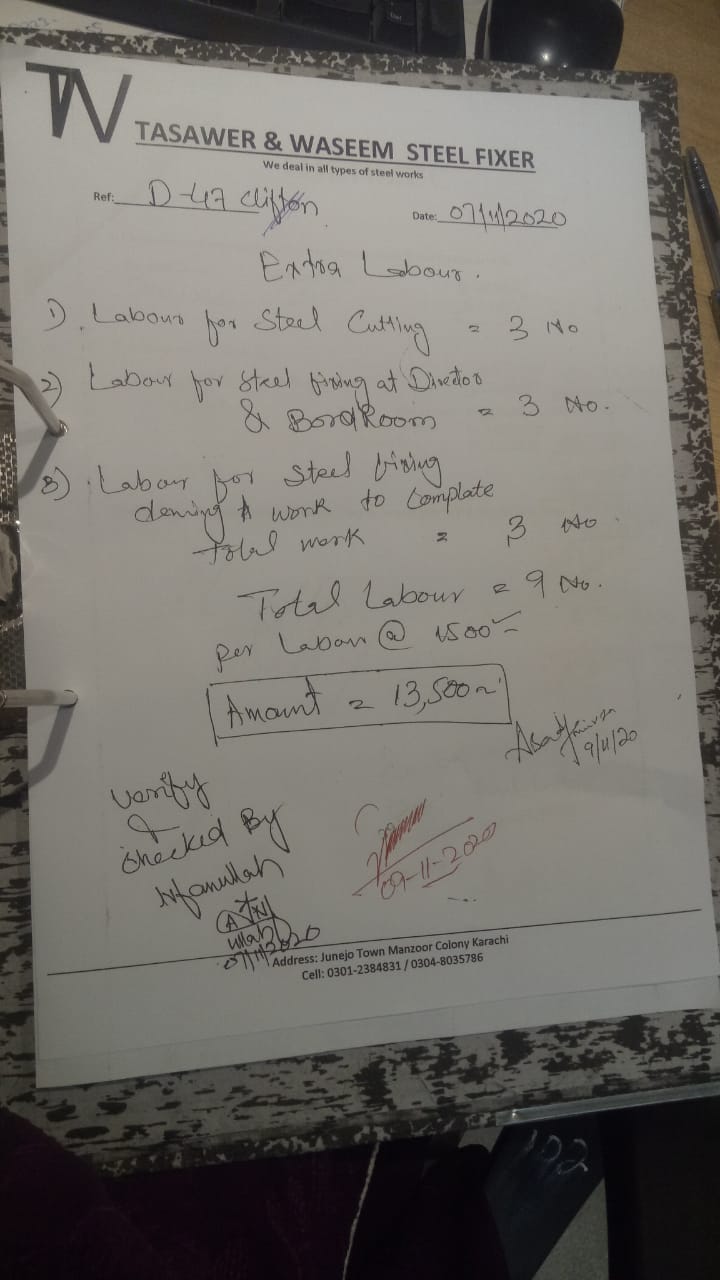 TW
TASAWER & WASEEM STEEL FIXER
We deal in all types of steel works
Ref: D-47 Clifton
Date: 07/11/2020
Extra Labour.
1) Labour for Steel Cutting = 3 No
2) Labour for steel fixing at Director
& BordRoom = 3 No.
3) Labour for Steel fixing
work to Complate
total work = 3 No.
Total Labour = 9 No.
per Labour @ 1500/-
Amount = 13,500/-
9/11/20
Verify
&
checked By
09-11-2020
07/11/2020
Address: Junejo Town Manzoor Colony Karachi
Cell: 0301-2384831 / 0304-8035786
102